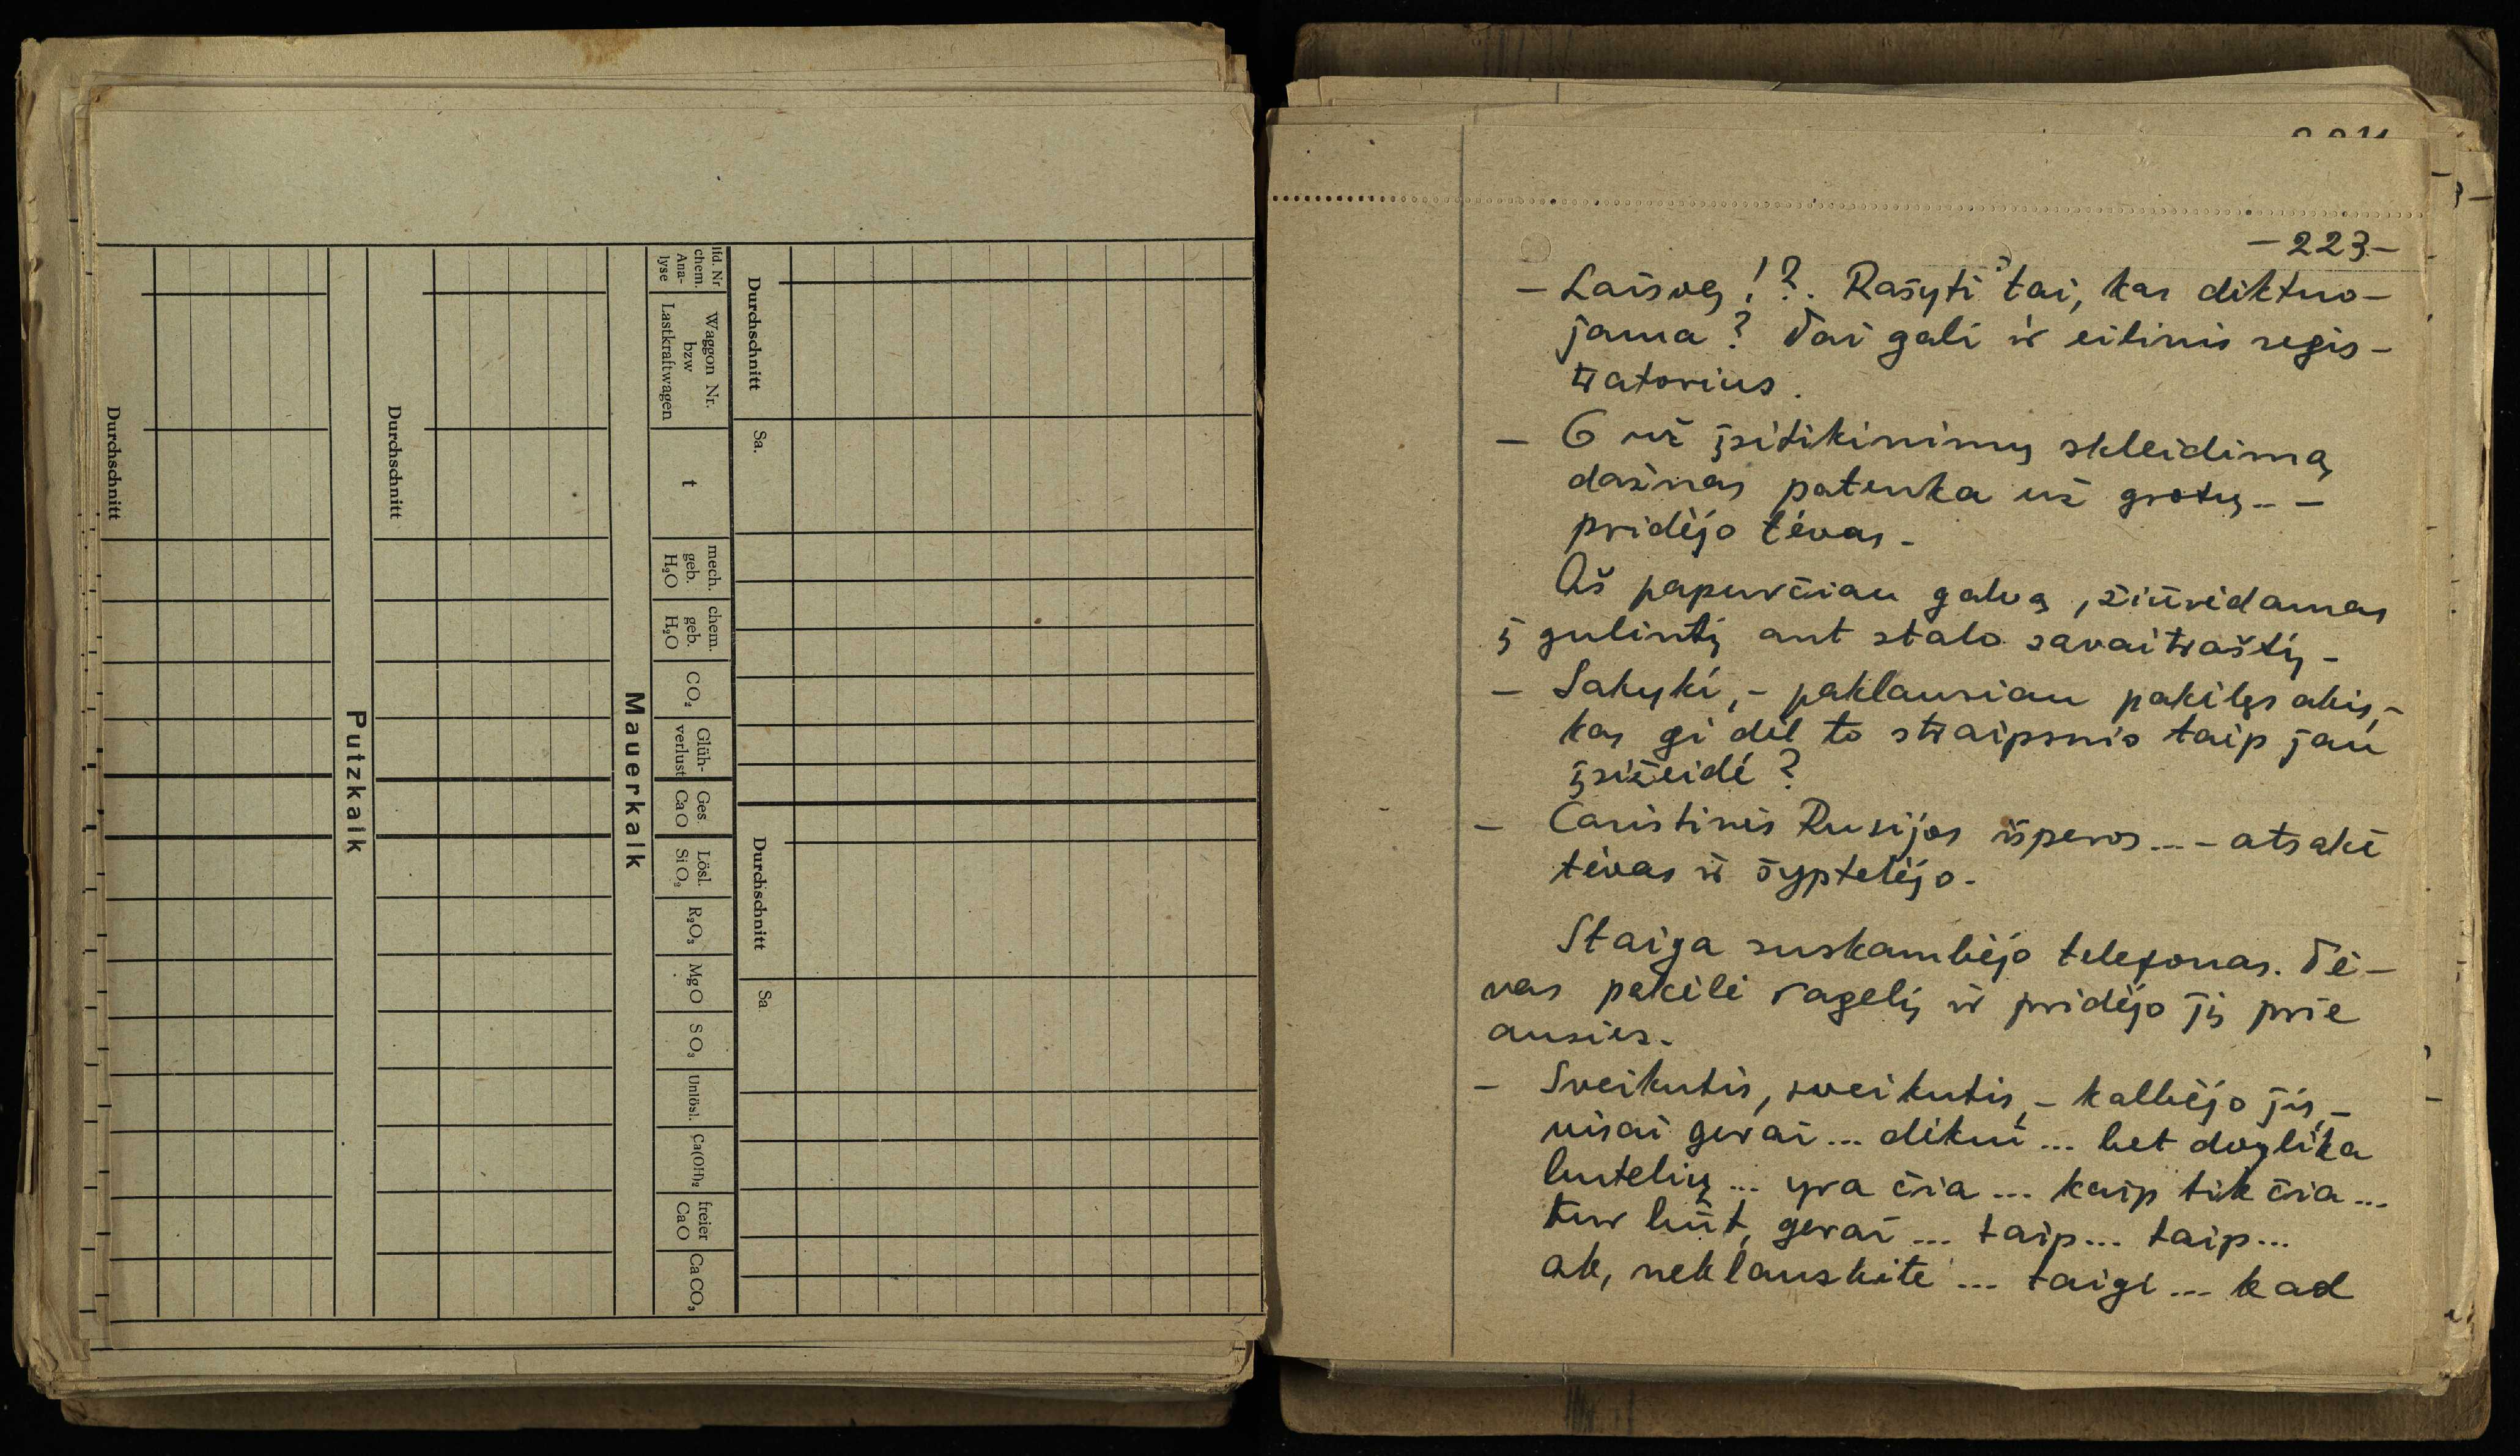 lfd. Nr
chem.
Ana-
lyse
Waggon Nr.
bzw
Lastkraftwagen
t
mech.
geb.
H₂O
chem.
geb.
H₂O
CO₂
Glüh-
verlust
Ges.
CaO
Lösl.
SiO₂
R₂O₃
MgO
SO₃
Unlösl.
Ca(OH)₂
freier
CaO
CaCO₃
Durchschnitt
Sa.
Durchschnitt
Sa
Mauerkalk
Durchschnitt
Putzkalk
Durchschnitt
-223-
- Laisvę!?. Rašyti tai, kas diktuo-
jama? Tai gali ir eilinis regis-
tratorius.
- O už įsitikinimų skleidimą
dažnas patenka už grotų.. -
pridėjo tėvas.
Aš papurčiau galvą, žiūrėdamas
į gulintį ant stalo savaitraštį.
- Sakyki, - paklausiau pakėlęs akis, -
kas gi dėl to straipsnio taip jau
įsižeidė?
- Caristinės Rusijos išperos... - atsakė
tėvas ir šyptelėjo.
Staiga suskambėjo telefonas. Tė-
vas pakėlė ragelį ir pridėjo jį prie
ausies.
- Sveikutis, sveikutis, - kalbėjo jis, -
visai gerai... dėkui... bet dvylika
butelių... yra čia... kaip tik čia...
tur būt, gerai... taip... taip...
ak, neklauskite... taigi... kad